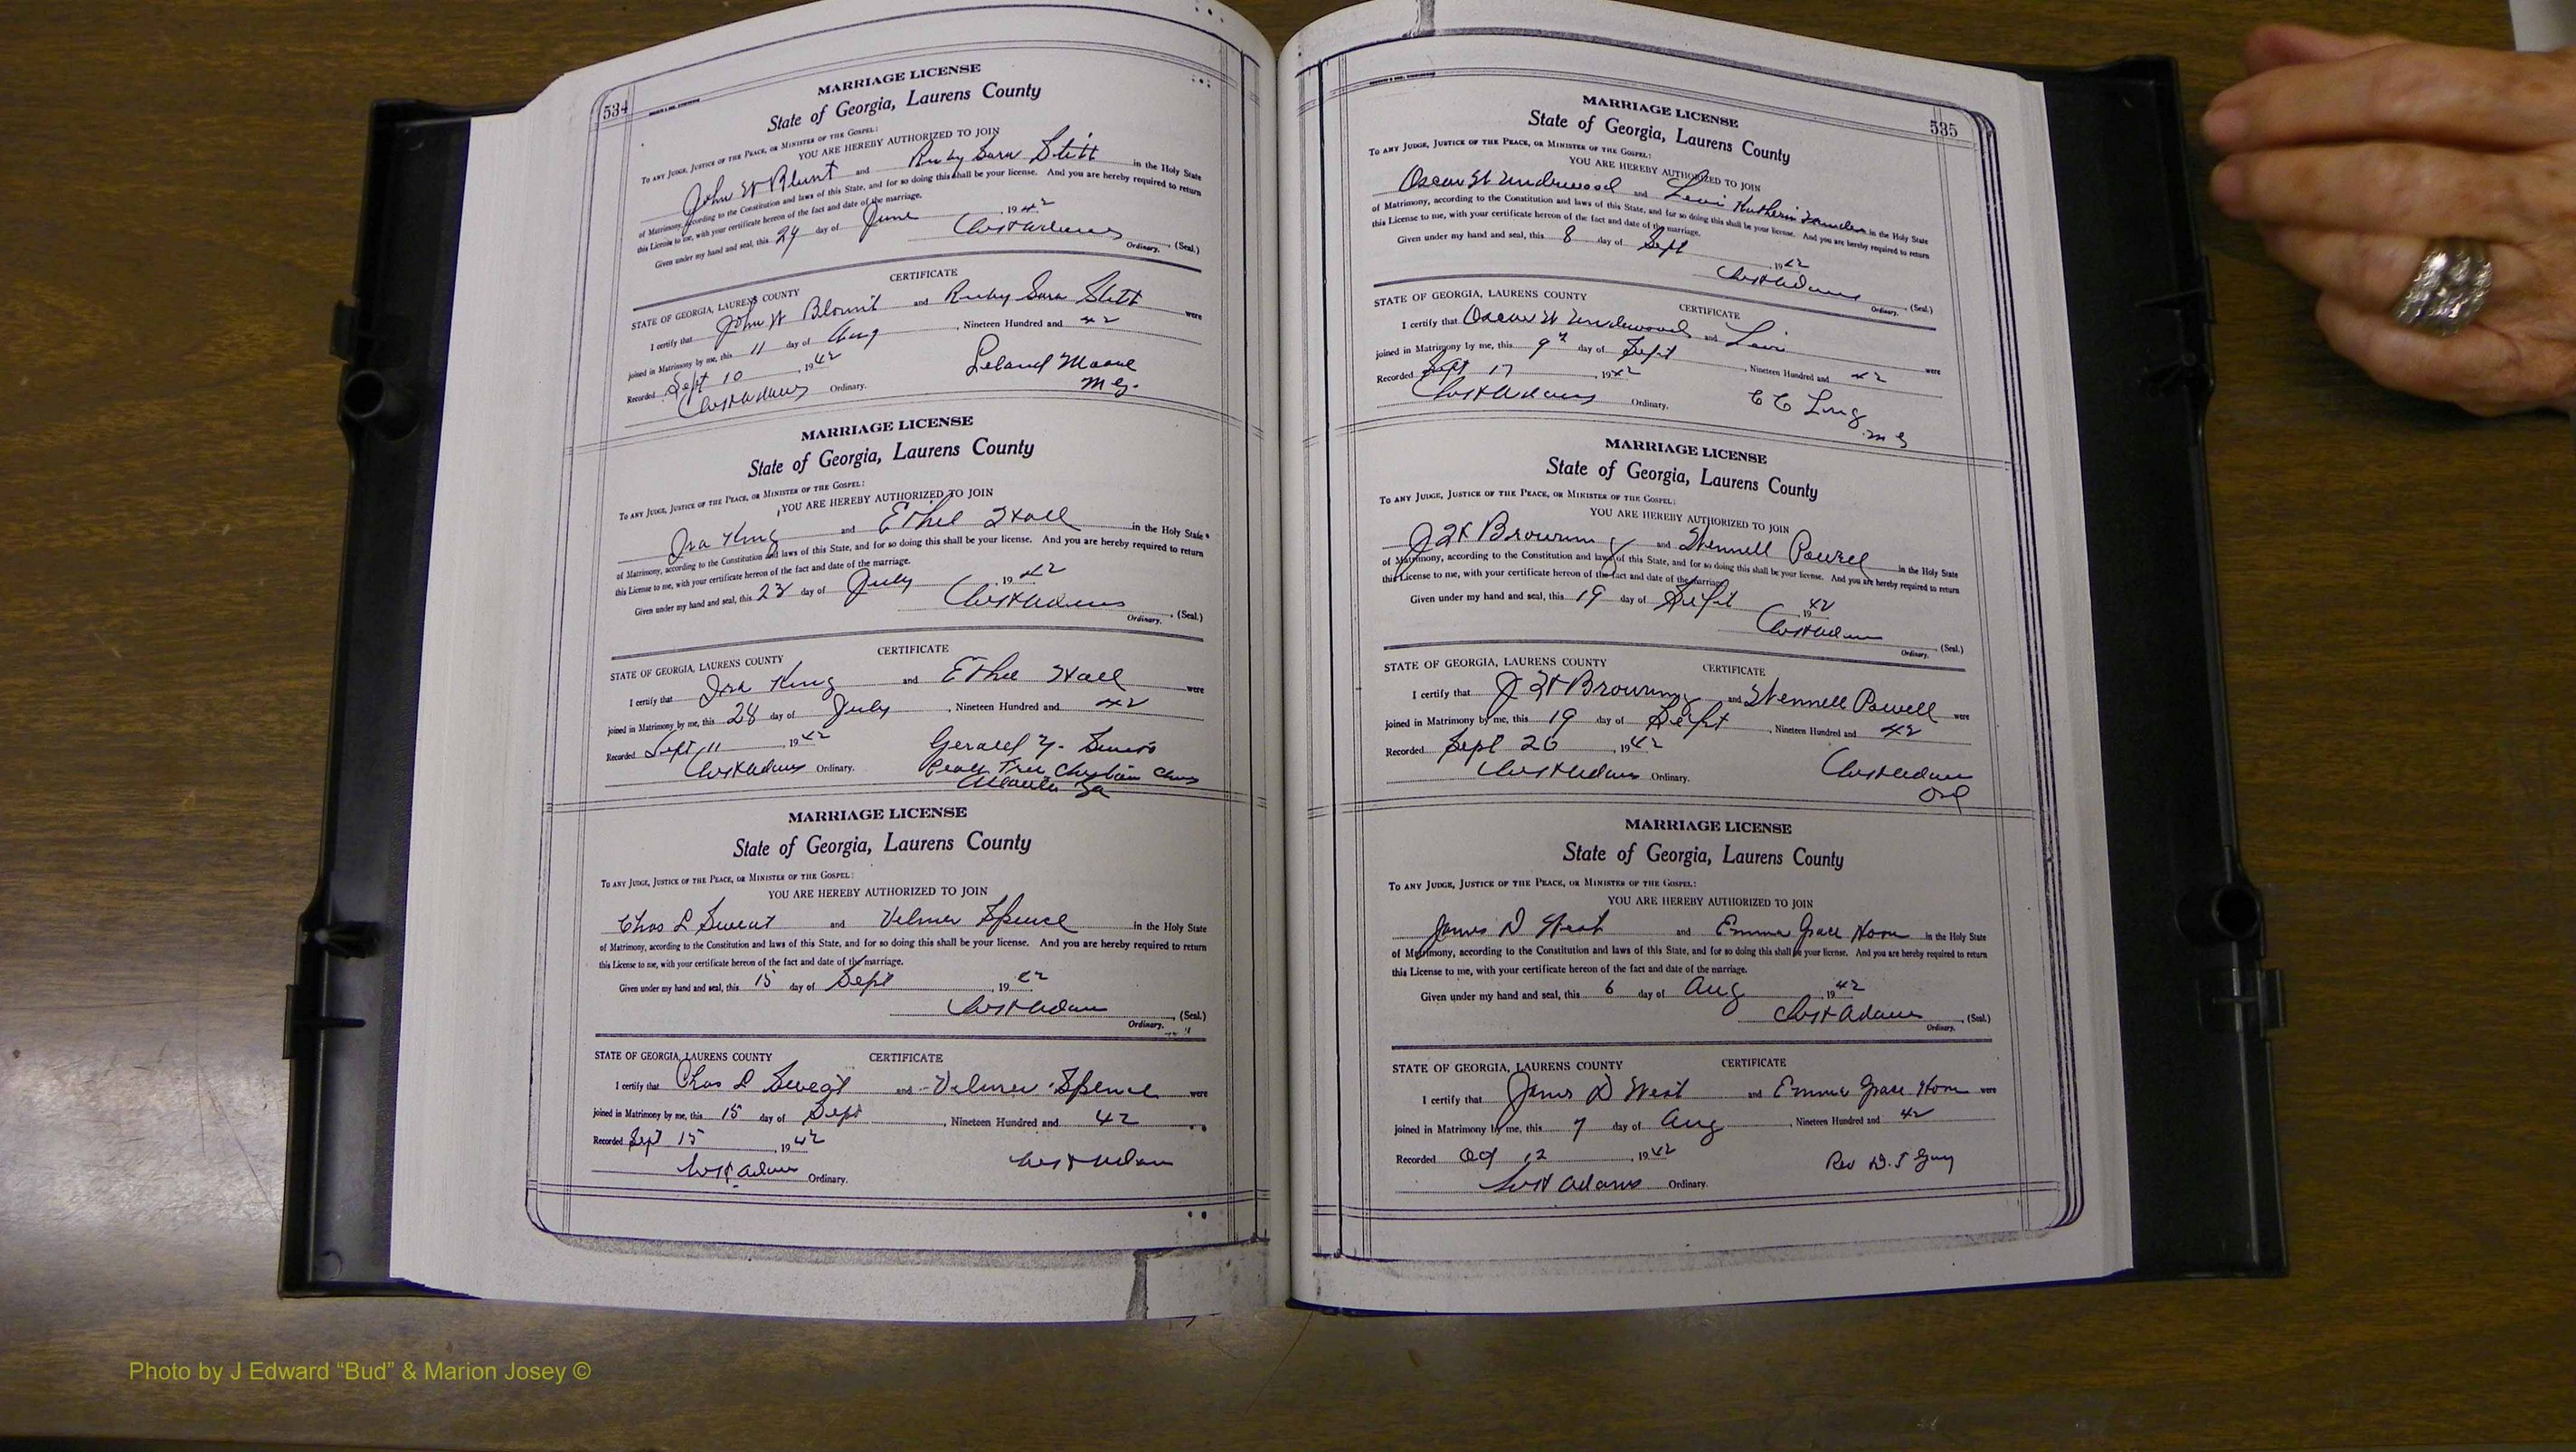 534
MARRIAGE LICENSE
State of Georgia, Laurens County
TO ANY JUDGE, JUSTICE OF THE PEACE, OR MINISTER OF THE GOSPEL:
YOU ARE HEREBY AUTHORIZED TO JOIN
John W Blunt and Ruby Sara Stitt in the Holy State
of Matrimony, according to the Constitution and laws of this State, and for so doing this shall be your license. And you are hereby required to return
this License to me, with your certificate hereon of the fact and date of the marriage.
Given under my hand and seal, this 24 day of June, 1942
(Seal.)
Ordinary.
CERTIFICATE
STATE OF GEORGIA, LAURENS COUNTY
I certify that John W Blount and Ruby Sara Stitt were
joined in Matrimony by me, this 11 day of Aug, Nineteen Hundred and 42
Recorded Sept 10, 1942
Leland Moore
M G.
Adams Ordinary.
MARRIAGE LICENSE
State of Georgia, Laurens County
TO ANY JUDGE, JUSTICE OF THE PEACE, OR MINISTER OF THE GOSPEL:
YOU ARE HEREBY AUTHORIZED TO JOIN
Ira King and Ethel Hall in the Holy State
of Matrimony, according to the Constitution and laws of this State, and for so doing this shall be your license. And you are hereby required to return
this License to me, with your certificate hereon of the fact and date of the marriage.
Given under my hand and seal, this 23 day of July, 1942
Adams (Seal.)
Ordinary.
CERTIFICATE
STATE OF GEORGIA, LAURENS COUNTY
I certify that Ira King and Ethel Hall were
joined in Matrimony by me, this 28 day of July, Nineteen Hundred and 42
Recorded Sept 11, 1942
Gerald Y.
Adams Ordinary.
Peach Tree Christian
Atlanta Ga
MARRIAGE LICENSE
State of Georgia, Laurens County
TO ANY JUDGE, JUSTICE OF THE PEACE, OR MINISTER OF THE GOSPEL:
YOU ARE HEREBY AUTHORIZED TO JOIN
Chas L Sweat and Velmer Spence in the Holy State
of Matrimony, according to the Constitution and laws of this State, and for so doing this shall be your license. And you are hereby required to return
this License to me, with your certificate hereon of the fact and date of the marriage.
Given under my hand and seal, this 15 day of Sept, 1942
Adams (Seal.)
Ordinary.
STATE OF GEORGIA, LAURENS COUNTY CERTIFICATE
I certify that Chas L Sweat and Velmer Spence were
joined in Matrimony by me, this 15 day of Sept, Nineteen Hundred and 42
Recorded Sept 15, 1942
Adams Ordinary.
Adams
535
MARRIAGE LICENSE
State of Georgia, Laurens County
TO ANY JUDGE, JUSTICE OF THE PEACE, OR MINISTER OF THE GOSPEL:
YOU ARE HEREBY AUTHORIZED TO JOIN
Oscar W Underwood and in the Holy State
of Matrimony, according to the Constitution and laws of this State, and for so doing this shall be your license. And you are hereby required to return
this License to me, with your certificate hereon of the fact and date of the marriage.
Given under my hand and seal, this 8 day of Sept, 1942
Adams (Seal.)
Ordinary.
STATE OF GEORGIA, LAURENS COUNTY CERTIFICATE
I certify that Oscar W Underwood and were
joined in Matrimony by me, this 9 day of Sept, Nineteen Hundred and 42
Recorded Sept 17, 1942
Adams Ordinary.
C C Long
M G
MARRIAGE LICENSE
State of Georgia, Laurens County
TO ANY JUDGE, JUSTICE OF THE PEACE, OR MINISTER OF THE GOSPEL:
YOU ARE HEREBY AUTHORIZED TO JOIN
J H Browning and Hennell Powell in the Holy State
of Matrimony, according to the Constitution and laws of this State, and for so doing this shall be your license. And you are hereby required to return
this License to me, with your certificate hereon of the fact and date of the marriage.
Given under my hand and seal, this 19 day of Sept 1942
Adams (Seal.)
Ordinary.
STATE OF GEORGIA, LAURENS COUNTY CERTIFICATE
I certify that J H Browning and Hennell Powell were
joined in Matrimony by me, this 19 day of Sept, Nineteen Hundred and 42
Recorded Sept 20, 1942
Adams Ordinary.
Adams
Ord
MARRIAGE LICENSE
State of Georgia, Laurens County
TO ANY JUDGE, JUSTICE OF THE PEACE, OR MINISTER OF THE GOSPEL:
YOU ARE HEREBY AUTHORIZED TO JOIN
James D West and Emma Grace Horn in the Holy State
of Matrimony, according to the Constitution and laws of this State, and for so doing this shall be your license. And you are hereby required to return
this License to me, with your certificate hereon of the fact and date of the marriage.
Given under my hand and seal, this 6 day of Aug, 1942
Adams (Seal.)
Ordinary.
STATE OF GEORGIA, LAURENS COUNTY CERTIFICATE
I certify that James D West and Emma Grace Horn were
joined in Matrimony by me, this 7 day of Aug, Nineteen Hundred and 42
Recorded 12, 1942
Rev
Adams Ordinary.
Photo by J Edward “Bud” & Marion Josey ©